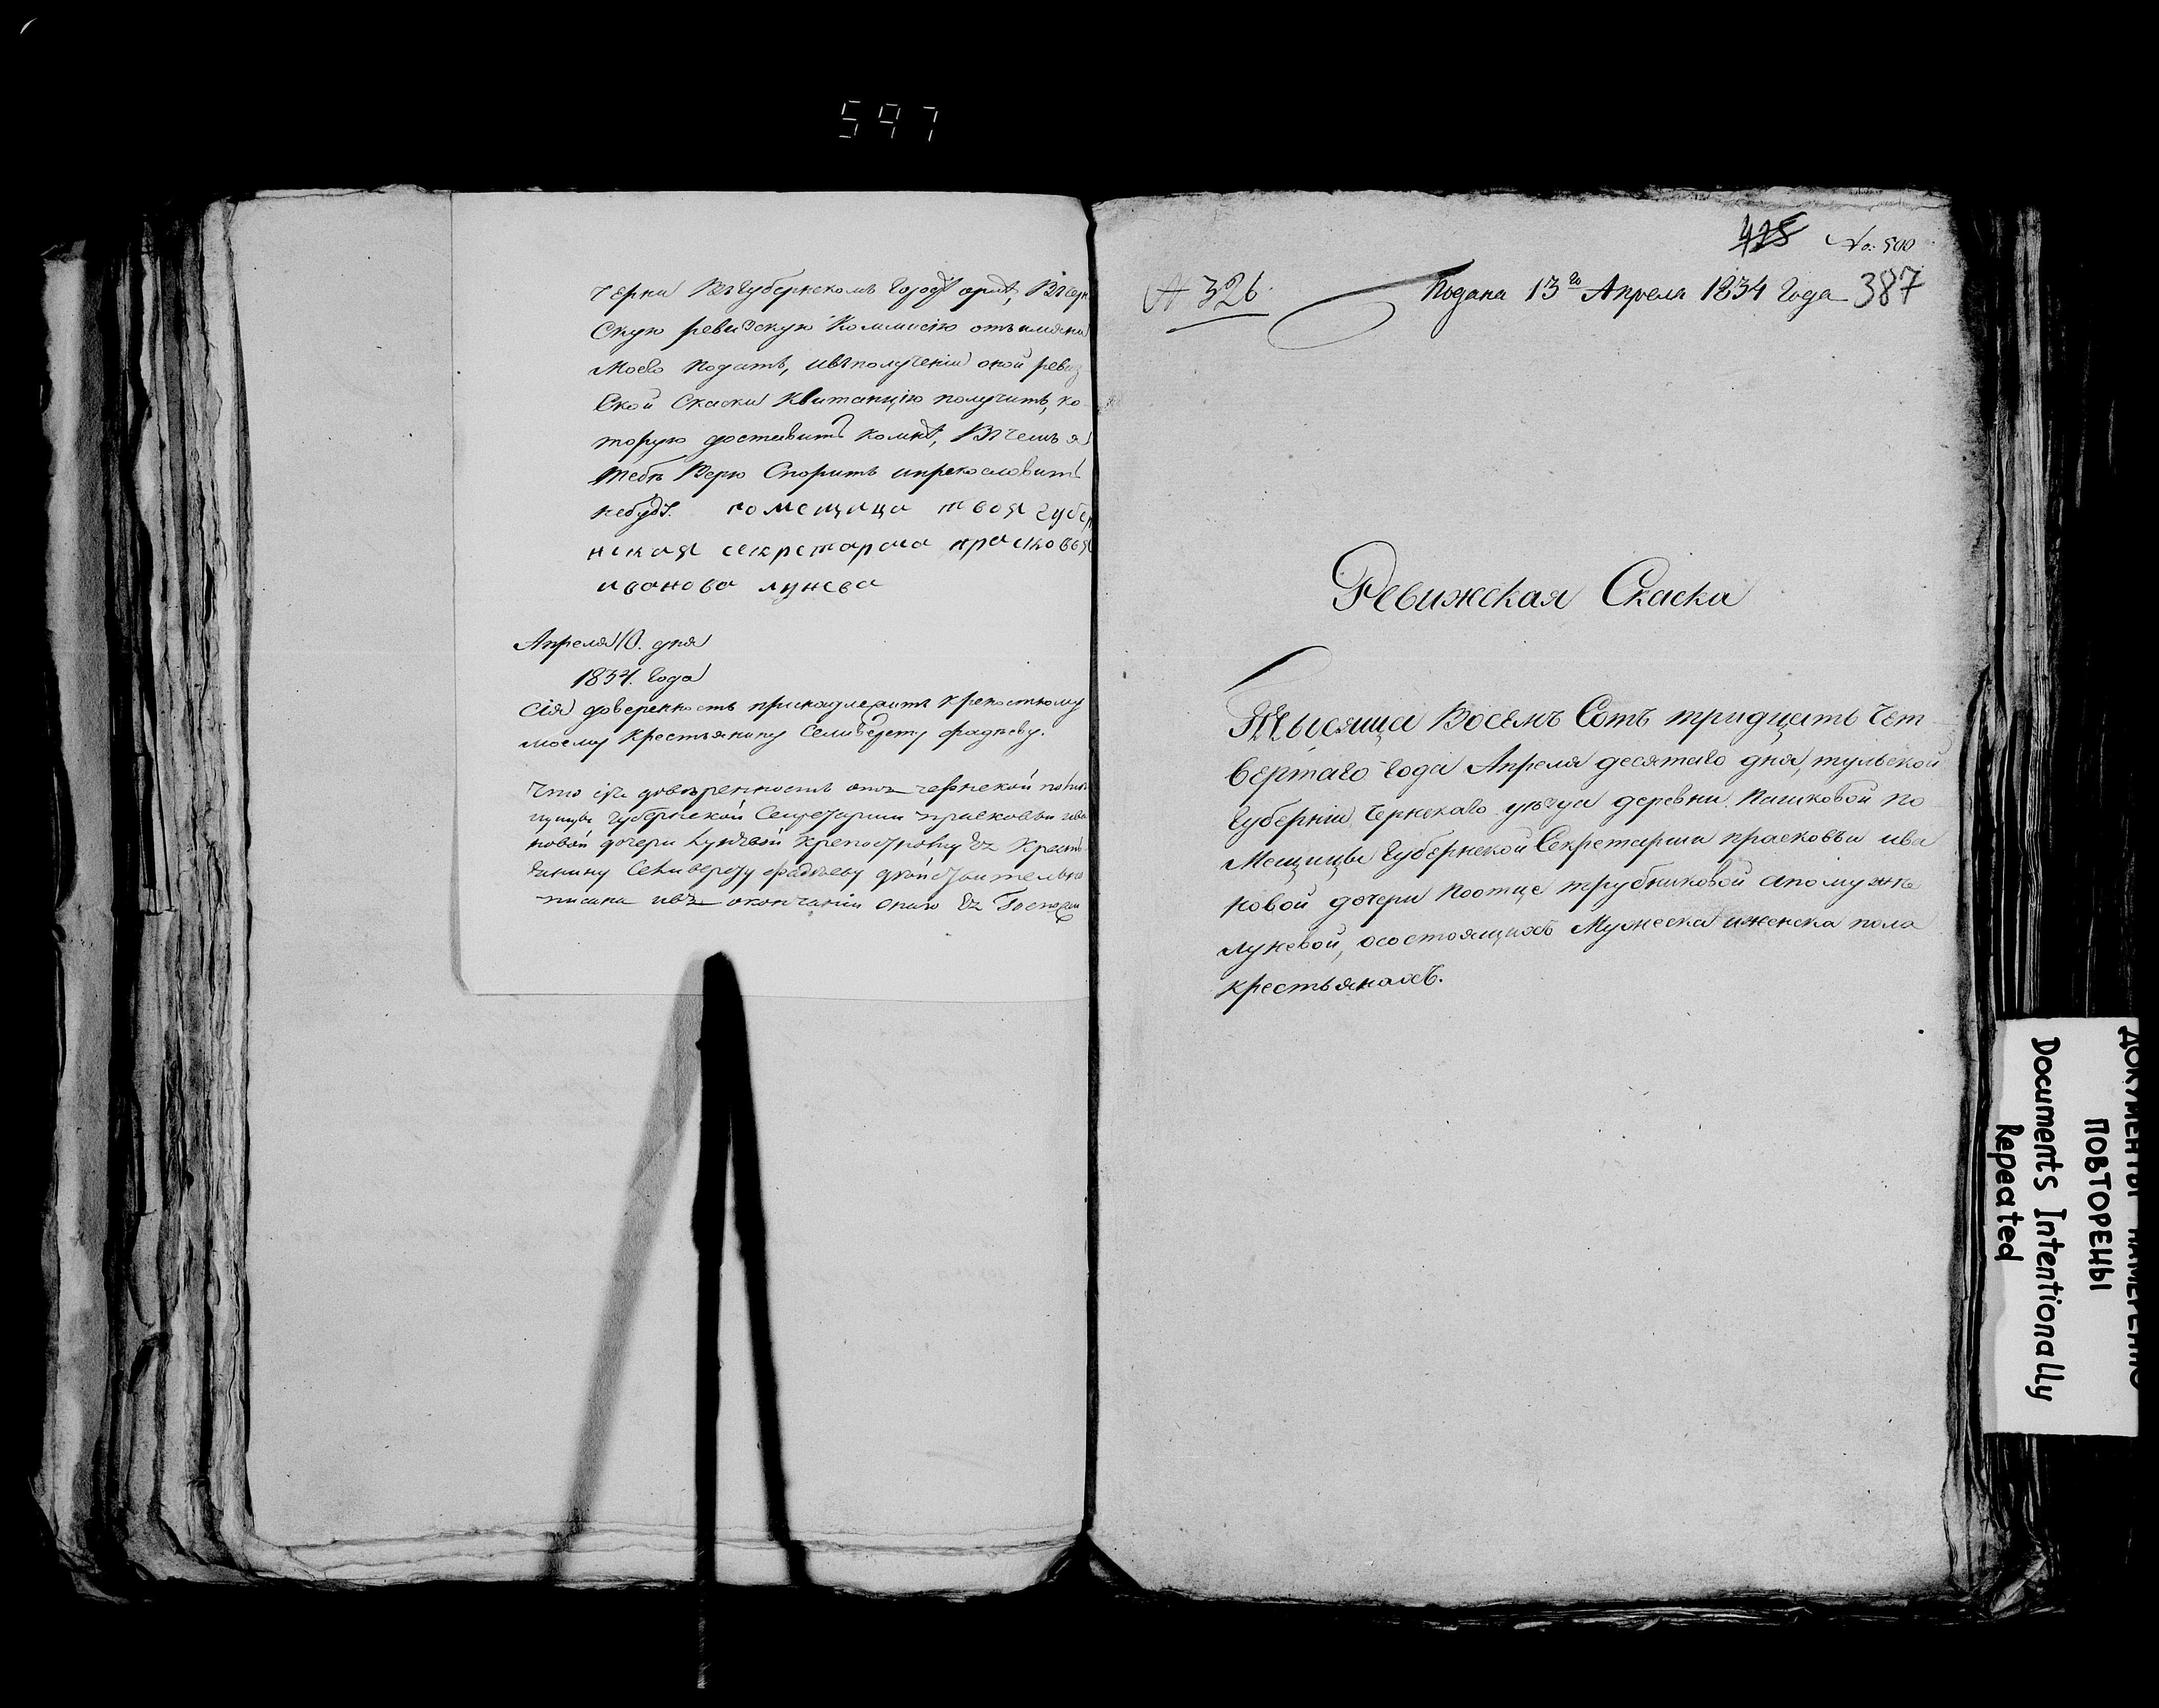 597
черни Въ губернскомъ городѣ орлѣ, Въ черн
Скую ревизскую Коммисiю отъ имяни
Моего подать, ивъ полученiи оной ревиз
Ской Скаски Квитанцiю получить, ко-
торую доставить комнѣ, Въ чемъ я
тебѣ Верю Спорить ипрекословить
небуду. помещица твоя губер
нская секретарша прасковья
иванова лунева
Апреля 10. дня
1834. года
Сiя доверенность принадлежитъ крепостному
моему крестьянину Селиверсту фадѣеву.
Что сiя довѣренность отъ чернской помѣ
щицы Губернской Секретарши прасковьи ива
новой дочери Лунѣвой крепостному Ея Крестъ
янину Селиверсту фадѣеву дѣйствительно
писана
425 No: 500
№ 326. Подана 13го Апреля 1834 года 387
Ревижская Скаска
Тысяща Восемъ Сотъ тридцать Чет
вертаго года Апреля десятаго дня, тульской
губернiи Чернскаго уѣзда деревни Пашковой по
Мещицы губернской Секретарши прасковьи ива
новой дочери поотце трубниковой апомужѣ
луневой, осостоящихъ Мужеска иженска пола
крестьянахъ.
ДОКУМЕНТЫ НАМЕРЕННО
ПОВТОРЕНЫ
Documents Intentionally
Repeated